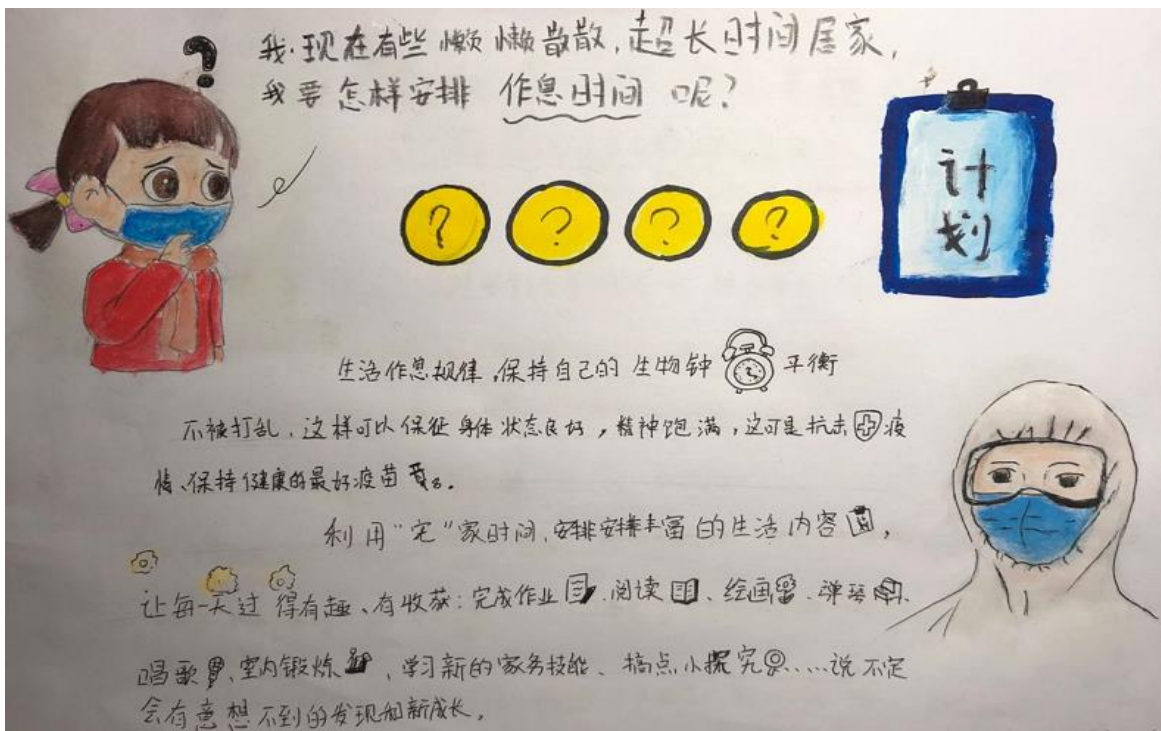 ?
我现在有些懒懒散散,超长时间居家,
我要怎样安排 作息时间 呢?
计
划
? ? ? ?
生活作息规律,保持自己的生物钟平衡
不被打乱,这样可以保证身体状态良好,精神饱满,这可是抗击疫
情、保持健康的最好疫苗。
利用"宅"家时间,安排安排丰富的生活内容,
让每一天过得有趣、有收获:完成作业、阅读、绘画、弹琴、
唱歌、室内锻炼、学习新的家务技能、搞点小探究……说不定
会有意想不到的发现和新成长。